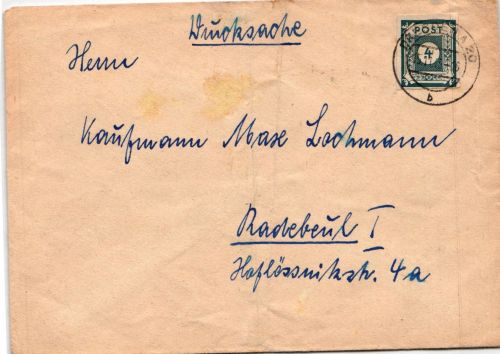 Drucksache
Herrn
POST
4
b
Kaufmann Max Lochmann
Radebeul I
Hoflössnitzstr. 4a